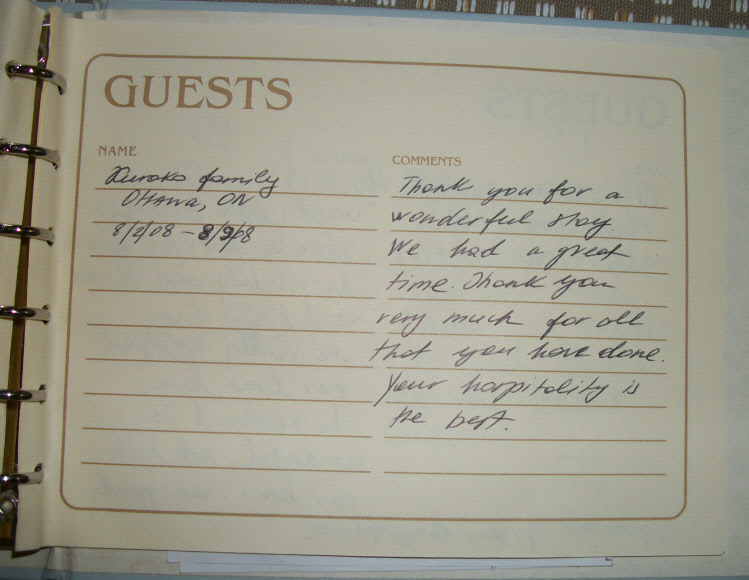 GUESTS
NAME
COMMENTS
family
Ottawa, ON
8/2/08 – 8/9/08
Thank you for a
wonderful stay.
We had a great
time. Thank you
very much for all
that you have done.
Your hospitality is
the best.